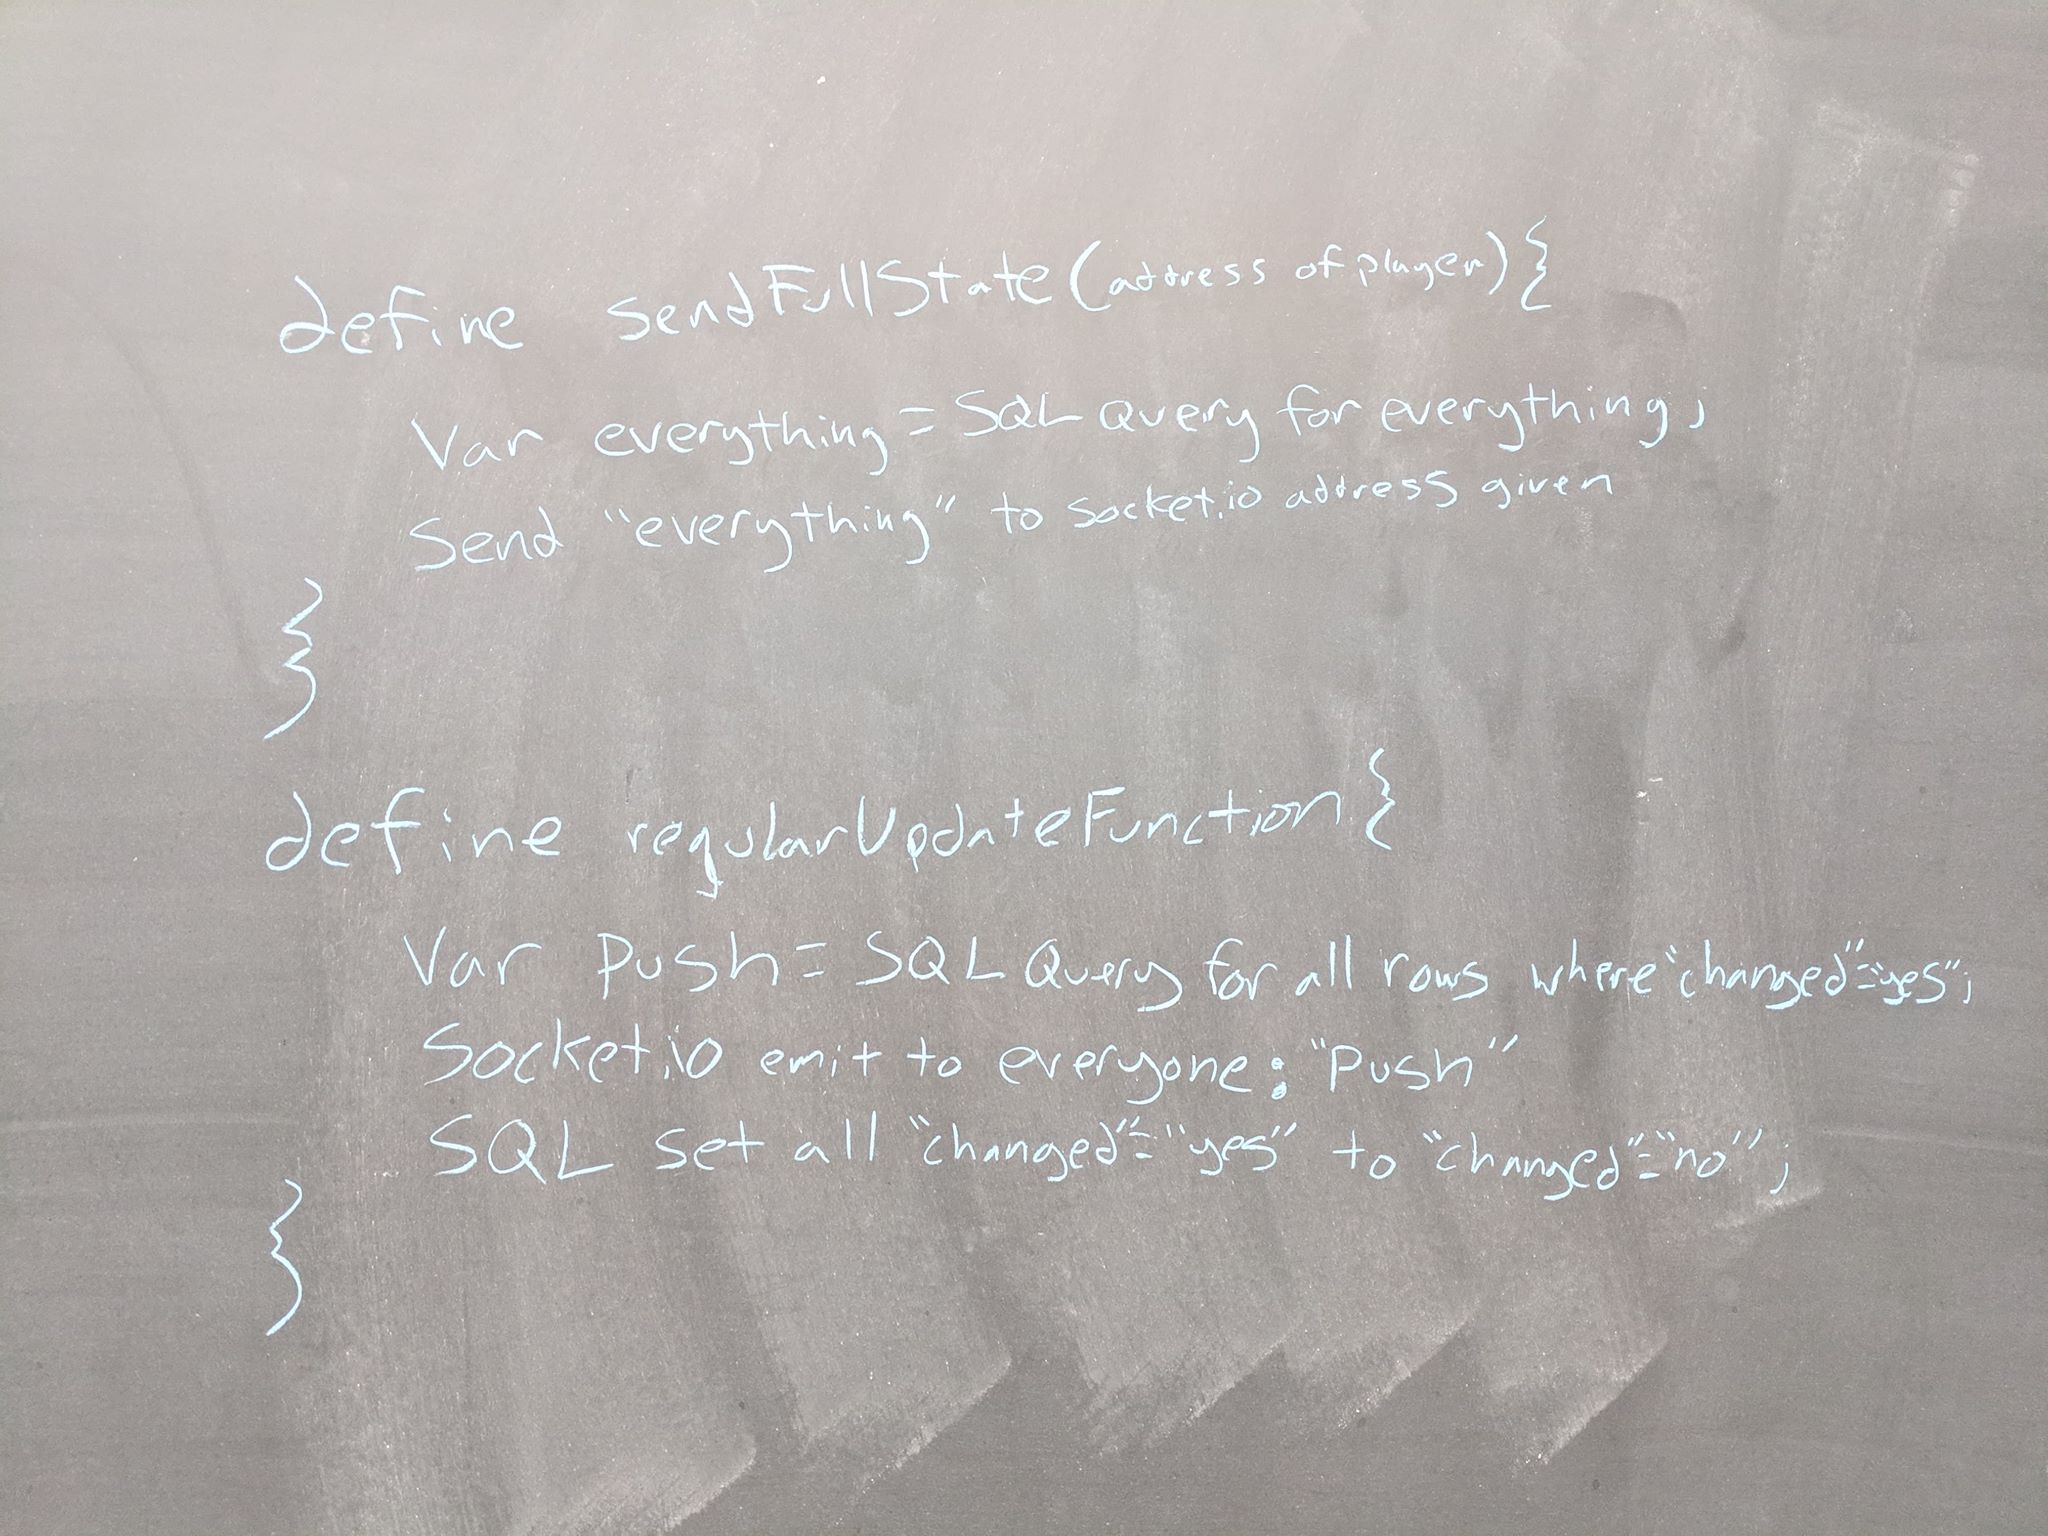 define sendFullState(address of player){
Var everything = SQL Query for everything;
Send "everything" to socket.io address given
}
define regularUpdateFunction{
Var Push = SQL Query for all rows where "changed"="yes";
Socket.io emit to everyone: "Push"
SQL set all "changed"="yes" to "changed"="no";
}